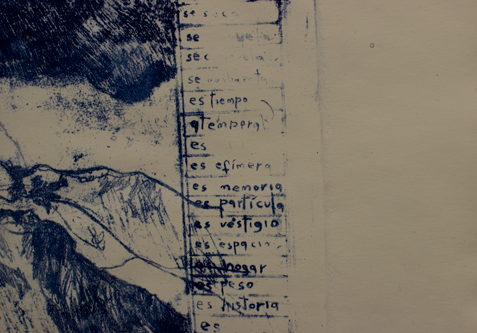 se seca
se vuela
se
se
es tiempo
atemporal
es
es efímera
es memoria
es partícula
es vestigio
es espacio
es hogar
es peso
es historia
es